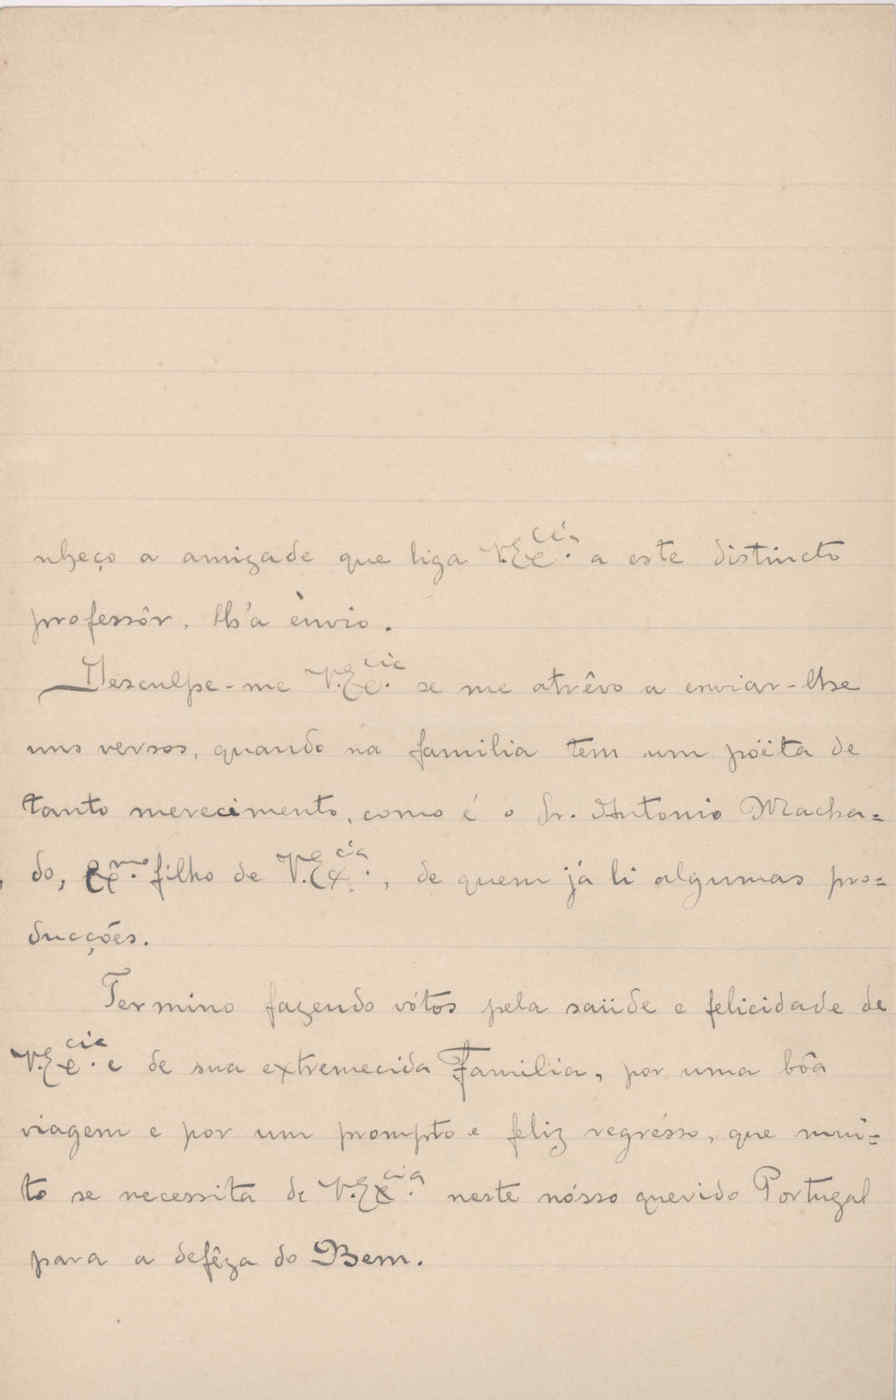 nheço a amizade que liga V.Ex.cia a este distincto
professôr, lh'a envio.
Desculpe-me V.Ex.cia se me atrêvo a enviar-lhe
uns versos, quando na familia tem um poëta de
tanto merecimento, como é o Sr. Antonio Macha=
do, Ex.mo filho de V.Ex.cia, de quem já li algumas pro=
ducções.
Termino fazendo vótos pela saüde e felicidade de
V.Ex.cia e de sua extremecida Familia, por uma bôa
viagem e por um prompto e feliz regrésso, que mui=
to se necessita de V.Ex.cia neste nósso querido Portugal
para a defêza do Bem.